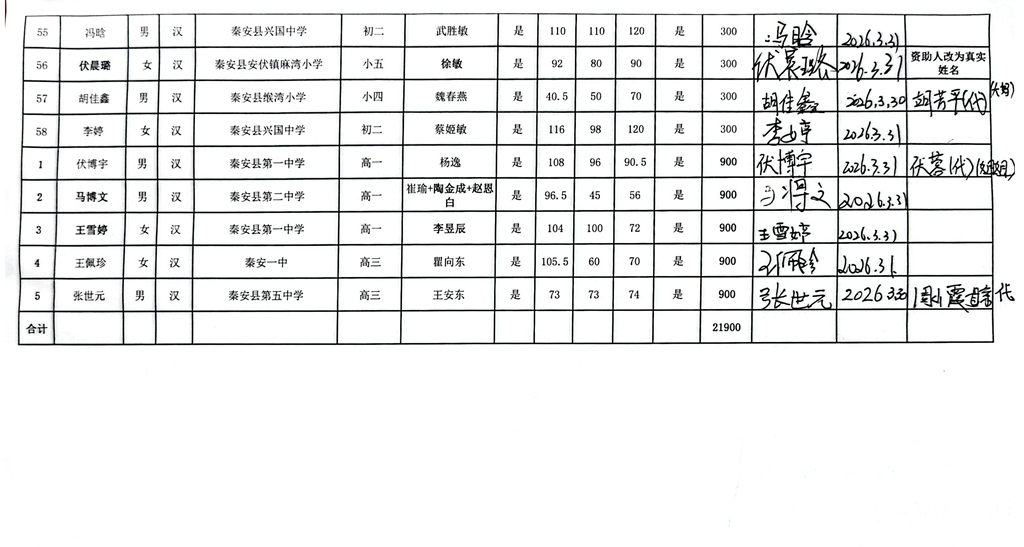 55 冯晗 男 汉 秦安县兴国中学 初二 武胜敏 是 110 110 120 是 300 冯晗 2026.3.31
56 伏晨璐 女 汉 秦安县安伏镇麻湾小学 小五 徐敏 是 92 80 90 是 300 伏晨璐 2026.3.31 资助人改为真实姓名
57 胡佳鑫 男 汉 秦安县缑湾小学 小四 魏春燕 是 40.5 50 70 是 300 胡佳鑫 2026.3.30 胡芳平(代)
58 李婷 女 汉 秦安县兴国中学 初二 蔡姬敏 是 116 98 120 是 300 李婷 2026.3.31
1 伏博宇 男 汉 秦安县第一中学 高一 杨逸 是 108 96 90.5 是 900 伏博宇 2026.3.31 伏蓉(代)
2 马博文 男 汉 秦安县第二中学 高一 崔瑜+陶金成+赵恩白 是 96.5 45 56 是 900 马博文 2026.3.31
3 王雪婷 女 汉 秦安县第一中学 高一 李昱辰 是 104 100 72 是 900 王雪婷 2026.3.31
4 王佩珍 女 汉 秦安一中 高三 瞿向东 是 105.5 60 70 是 900 王佩珍 2026.31.
5 张世元 男 汉 秦安县第五中学 高三 王安东 是 73 73 74 是 900 张世元 2026 3.30 代
合计 21900